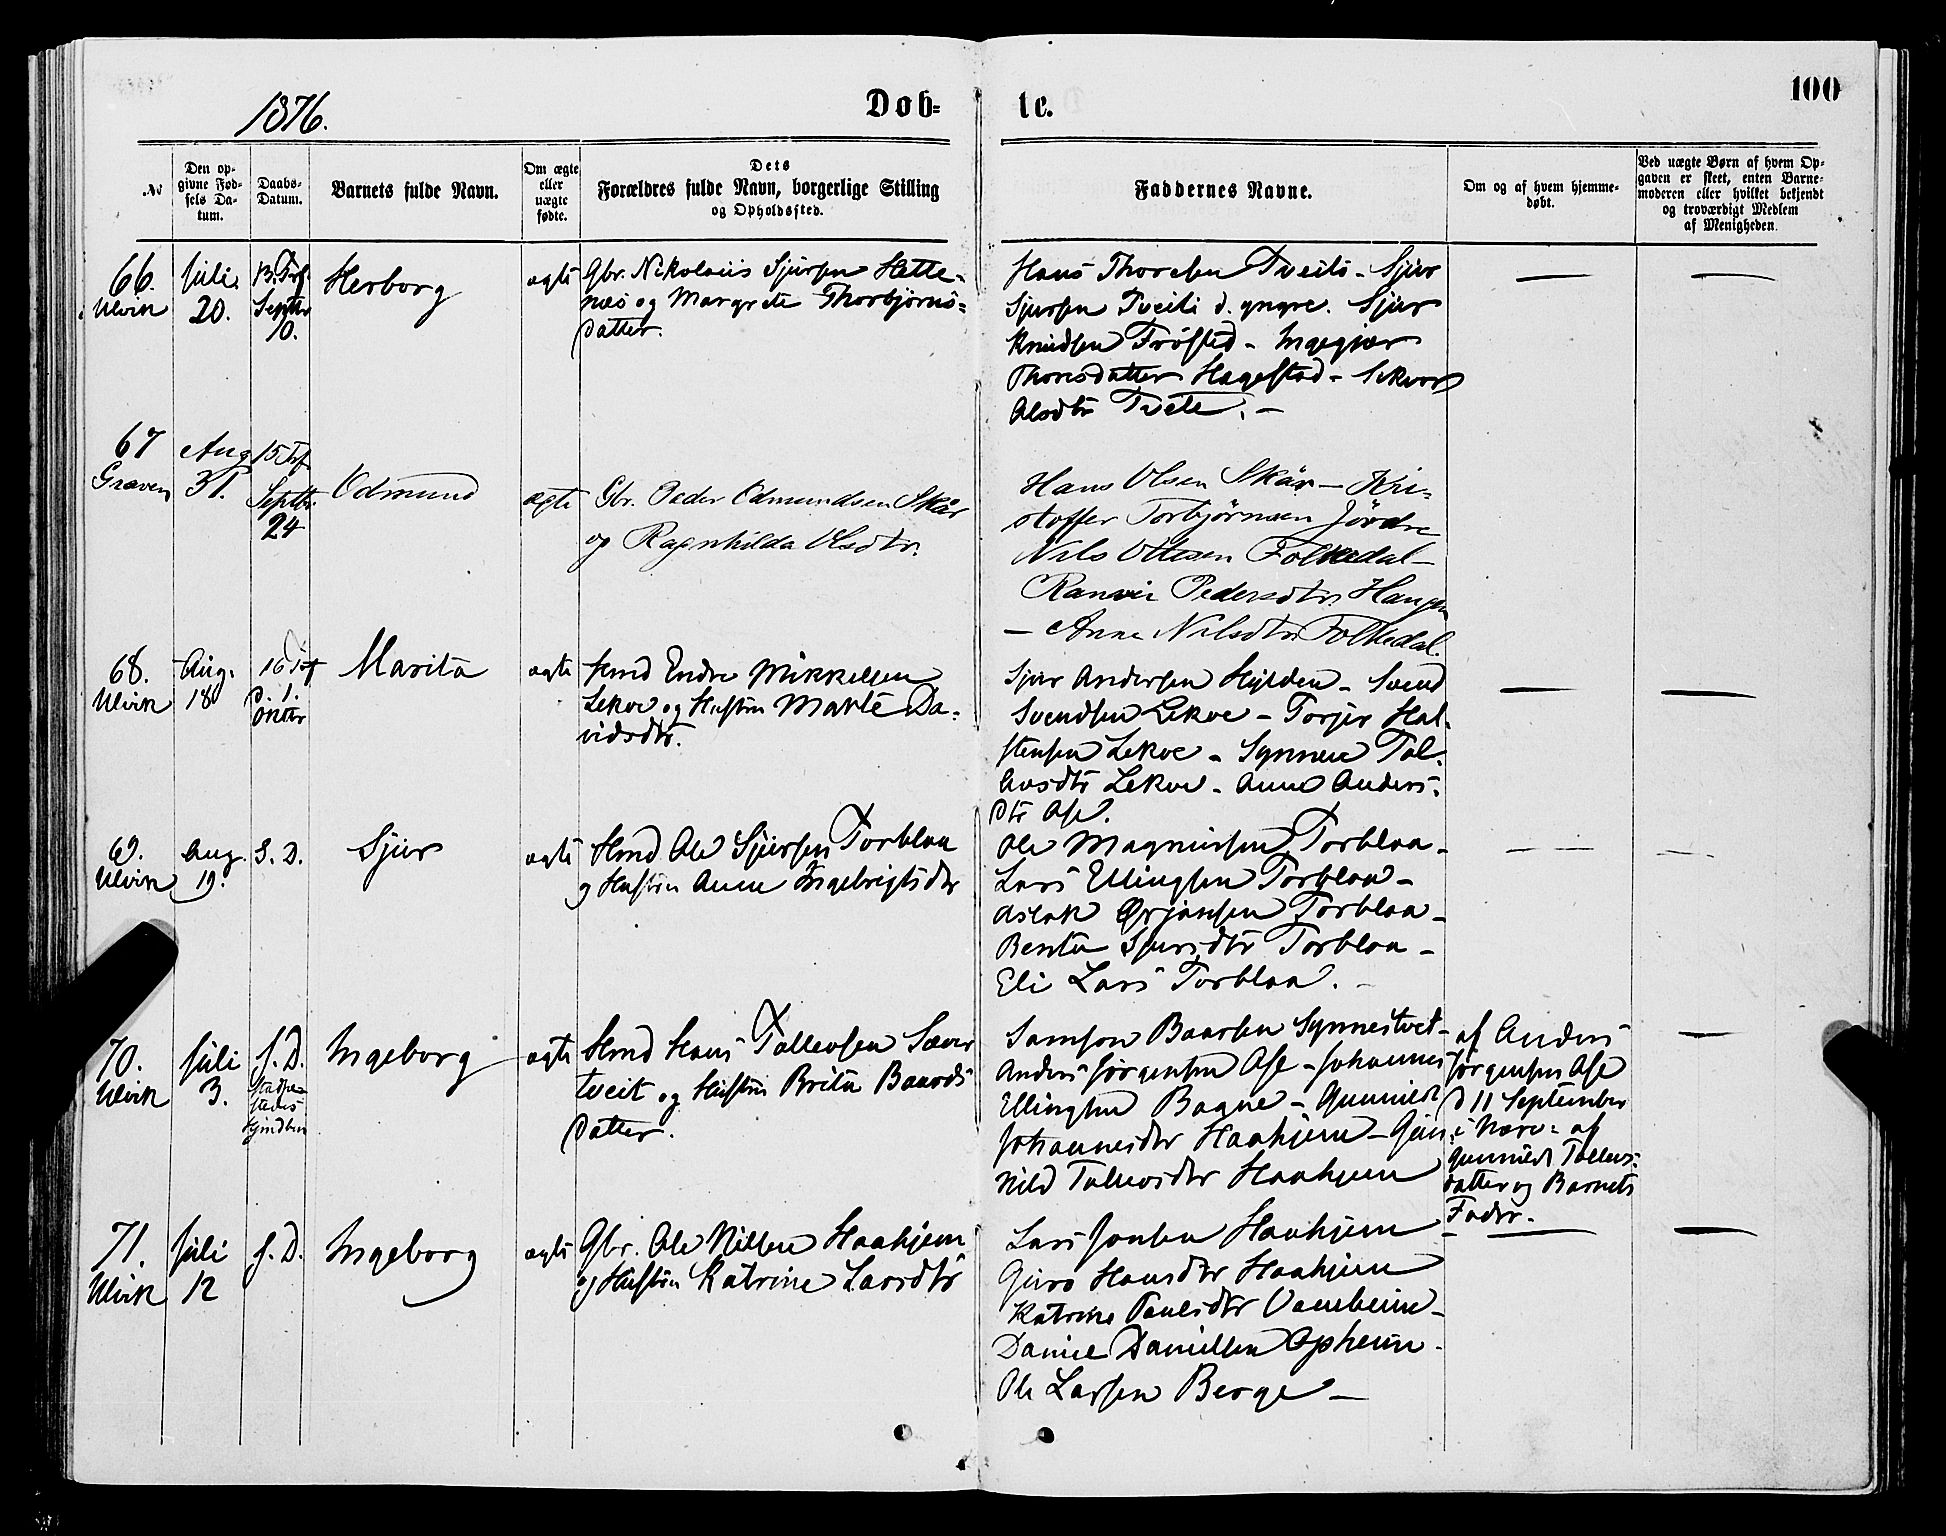 1876.
Døb-
te.
100
№
Den op-
givne Fød-
sels Da-
tum.
Daabs-
Datum.
Barnets fulde Navn.
Om ægte
eller
uægte
fødte.
Dets
Forældres fulde Navn, borgerlige Stilling
og Opholdssted.
Faddernes Navne.
Om og af hvem hjemme-
døbt.
Ved uægte Børn af hvem Op-
gaven er skeet, enten Barne-
moderen eller hvilket bekjendt
og troværdigt Medlem
af Menigheden.
66.
Ulvik
Juli
20.
Septbr
10.
Herborg
ægte
Gbr. Nikolaus Sjursen Hette-
næs og Margrete Thorbjørns-
datter.
Hans Thorsen Tveito - Sjur
Sjursen Tveiti d. yngre. Sjur
Knudsen Frøsted -
Thorsdatter Hagestad -
Olsdtr Tveite. -
67
Graven
Aug
31.
15 Trf
Septbr.
24
Odmund
ægte
Gbr. Peder Odmundsen Skår
og Ragnhilda Olsdtr.
Hans Olsen Skår - Kri-
stoffer Torbjørnsen Jördre
Nils Olsen Folkedal -
Ranvei Pedersdtr. Haugen
- Anna Nilsdtr. Folkedal.
68.
Ulvik
Aug.
18
16 Trf
1.
Oktbr
Marita
ægte
Hmd Endre Mikkelsen
Lekve og Hustru Marte Da-
vidsdtr.
Sjur Andersen Hylden - Svend
Svendsen Lekve - Torjer Hal-
stensen Lekve - Synneve Tol-
levsdtr Lekve - Anne Anders-
dtr Ose.
69.
Ulvik
Aug.
19.
S. D.
Sjur
ægte
Hmd Ole Sjursen Torblaa
og Hustru Anne Ingebrigtsdtr
Ole Magnussen Torblaa -
Lars Ellingsen Torblaa -
Aslak Ørjansen Torblaa -
Benta Sjursdtr Torblaa -
Eli Lars Torblaa. -
70.
Ulvik
Juli
3.
S. D.
Ingeborg
ægte
Hmd Hans Tollevsen Sæver-
tveit og Hustru Brita Baards
datter.
Samson Baarsen Synnestvet -
Anders Jørgensen Ose - Johannes
Ellingsen Bagne - Gunnild
Johannesdtr Haahjem - Gun-
nild Tollevsdtr Haahjem
af Anders
Jørgensen Ose
d 11 September
i Nærv: af
Gunnild Tollevs-
datter og Barnets
Fader. -
71.
Ulvik
Juli
12
S. D.
Ingeborg
ægte
Gbr. Ole Nilsen Haahjem
og Hustru Katrine Larsdtr
Lars Jonsen Haahjem -
Guro Hansdtr Haahjem
Katrine Paulsdtr Vambheim -
Daniel Danielsen Opheim -
Ole Larsen Berge -